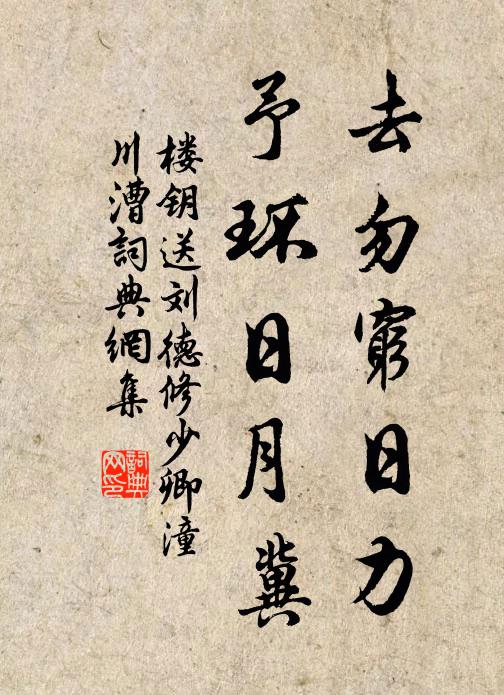 去勿穷日力
予环日月冀
楼钥送刘德修少卿潼
川漕词典網集
詞典網印